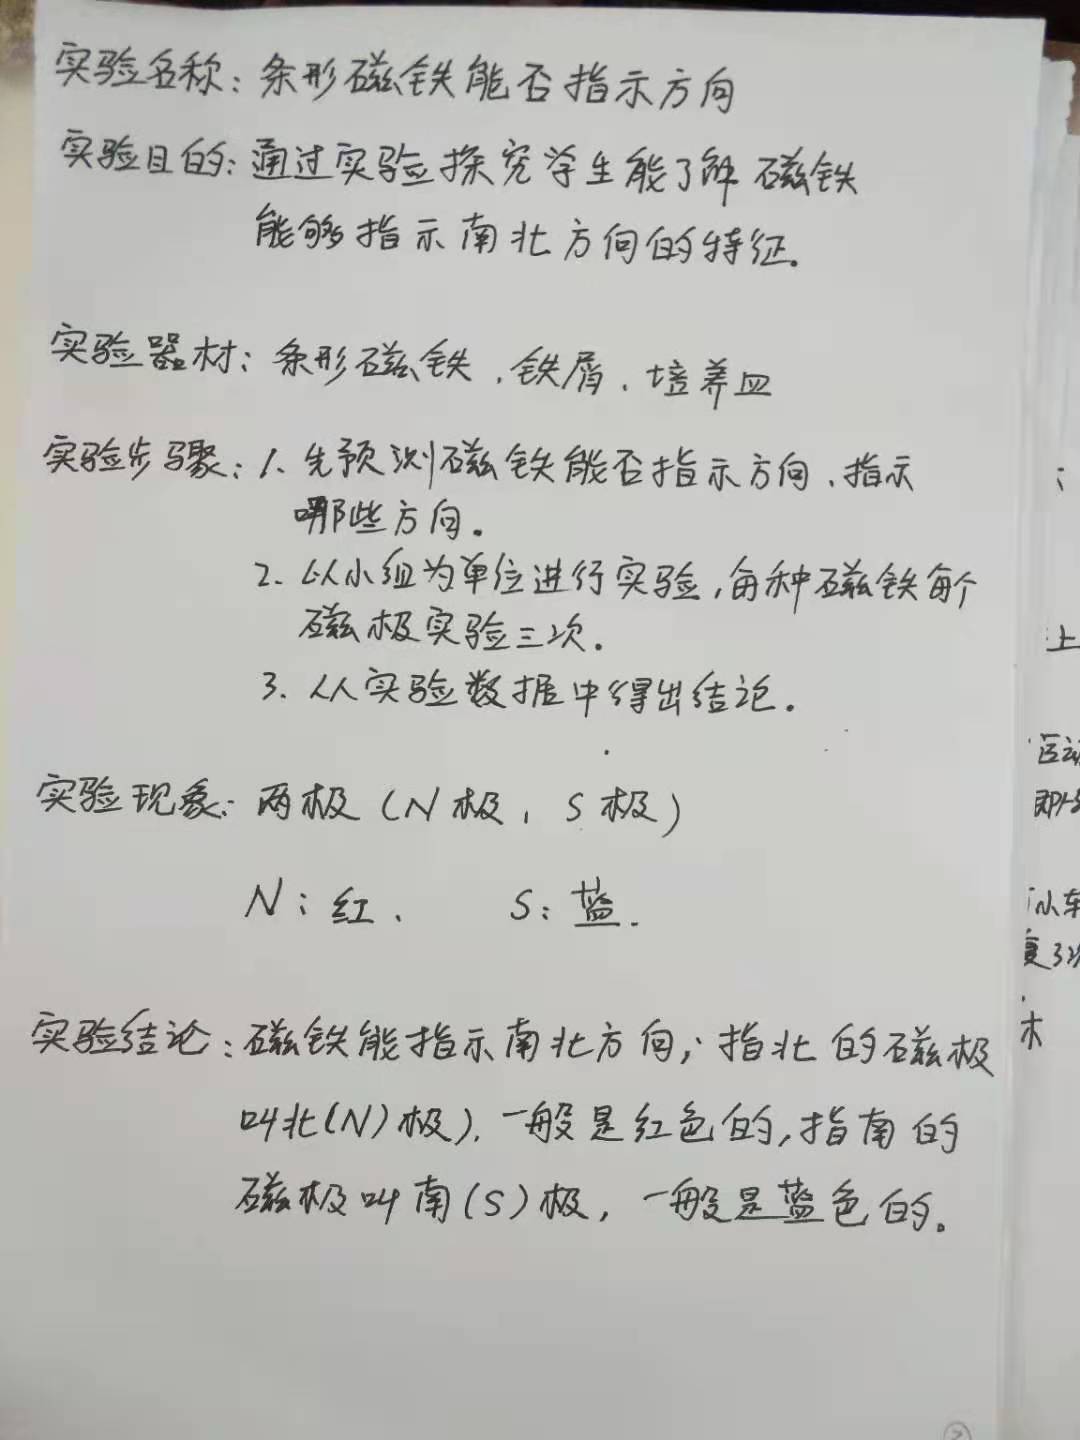 实验名称：条形磁铁能否指示方向
实验目的：通过实验探究学生能了解磁铁
能够指示南北方向的特征.
实验器材：条形磁铁、铁屑、培养皿
实验步骤：1、先预测磁铁能否指示方向、指示
哪些方向。
2、以小组为单位进行实验，每种磁铁每个
磁极实验三次.
3、从实验数据中得出结论.
实验现象：两极(N极、S极)
N：红、 S：蓝.
实验结论：磁铁能指示南北方向，指北的磁极
叫北(N)极)、一般是红色的,指南的
磁极叫南(S)极，一般是蓝色的。
；
上
运动
小车
复3次
木
2